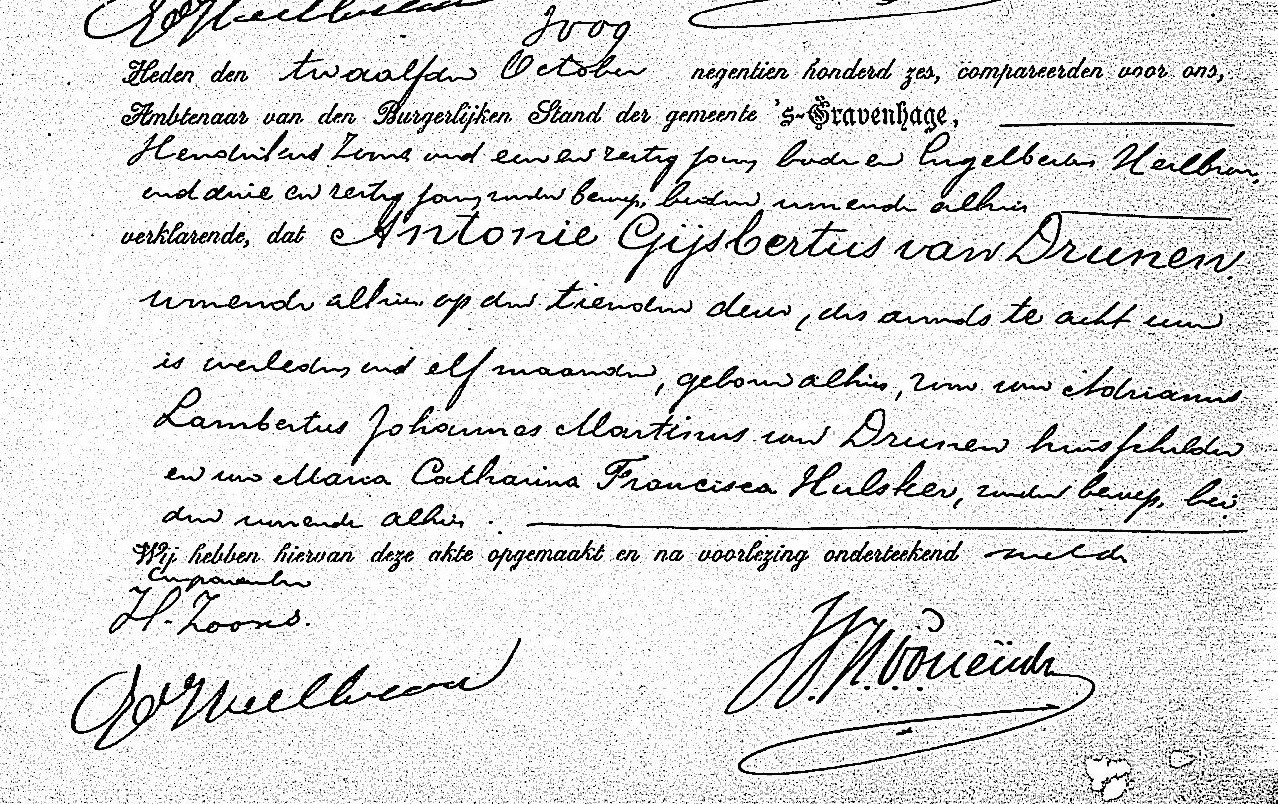 Heden den twaalfden October negentien honderd zes, compareerden voor ons,
Ambtenaar van den Burgerlijken Stand der gemeente 's-Gravenhage,
Hendrikus Zoons oud een en dertig jaar, bode en Engelbertus Heilbron,
oud drie en dertig jaar, zonder beroep, beiden wonende alhier
verklarende, dat Antonie Gijsbertus van Drunen.
wonende alhier op den tienden dezer, des avonds te acht uren
is overleden, oud elf maanden, geboren alhier, zoon van Adrianus
Lambertus Johannes Martinus van Drunen huisschilder
en van Maria Catharina Francisca Hulsker, zonder beroep, bei
den wonende alhier.
Wij hebben hiervan deze akte opgemaakt en na voorlezing onderteekend met de
Comparanten
H. Zoons.